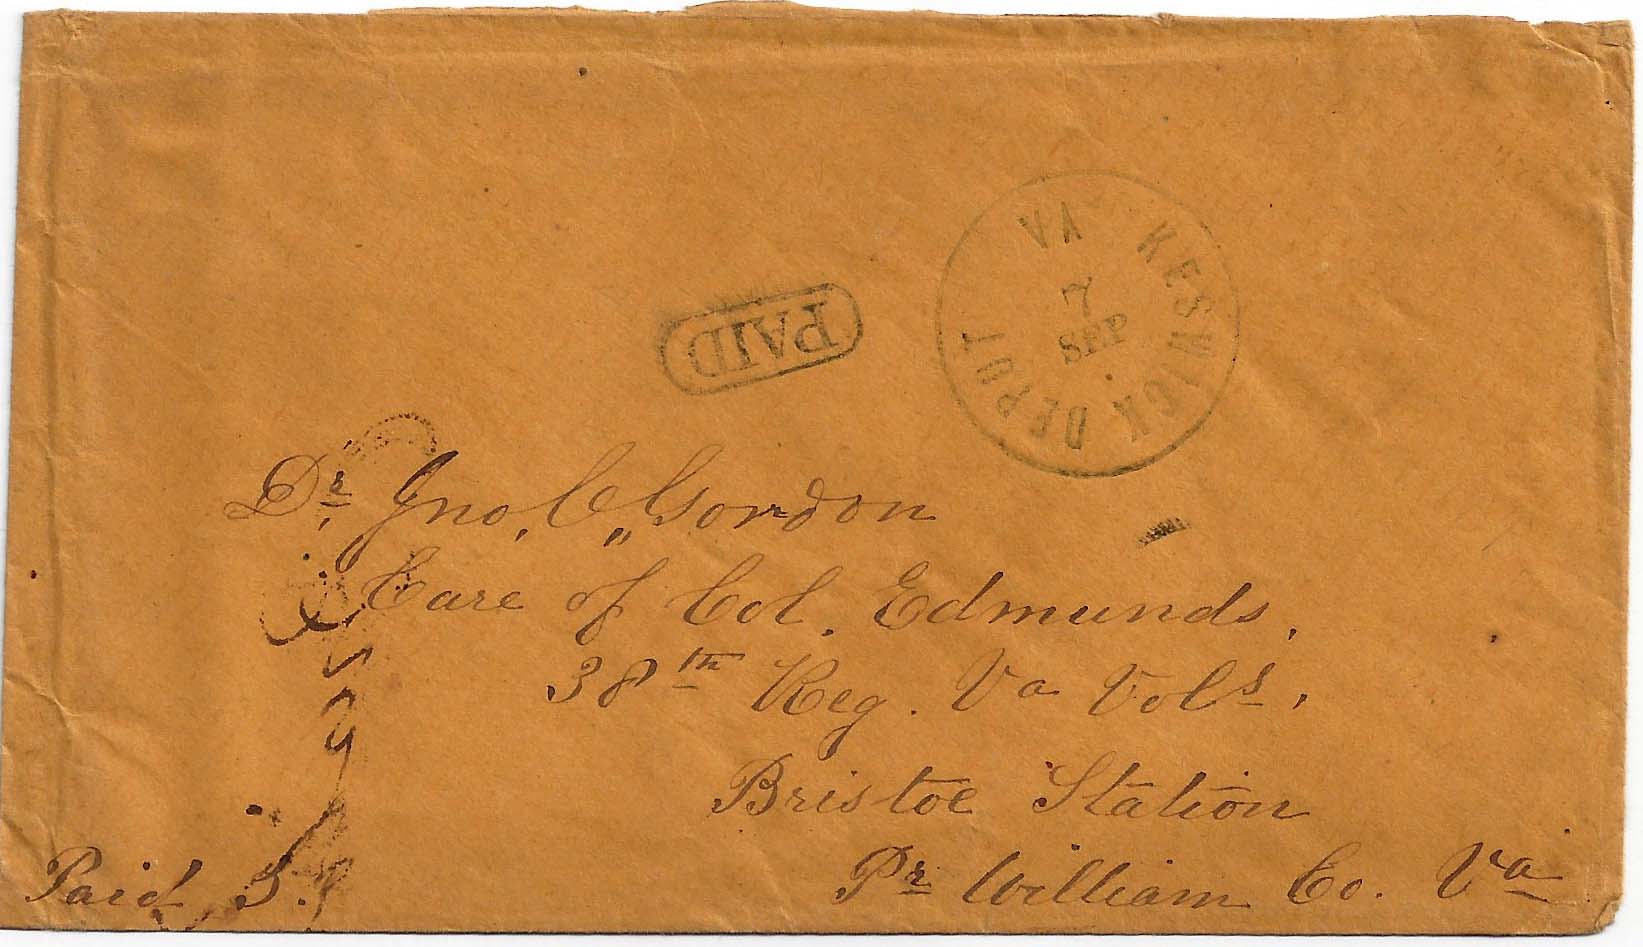 KESWICK DEPOT VA
7
SEP
PAID
Dr. Jno, C,, Gordon
Care of Col. Edmunds,
38th Reg. Va Vols,
Bristoe Station
Pr William Co. Va
Paid 5.